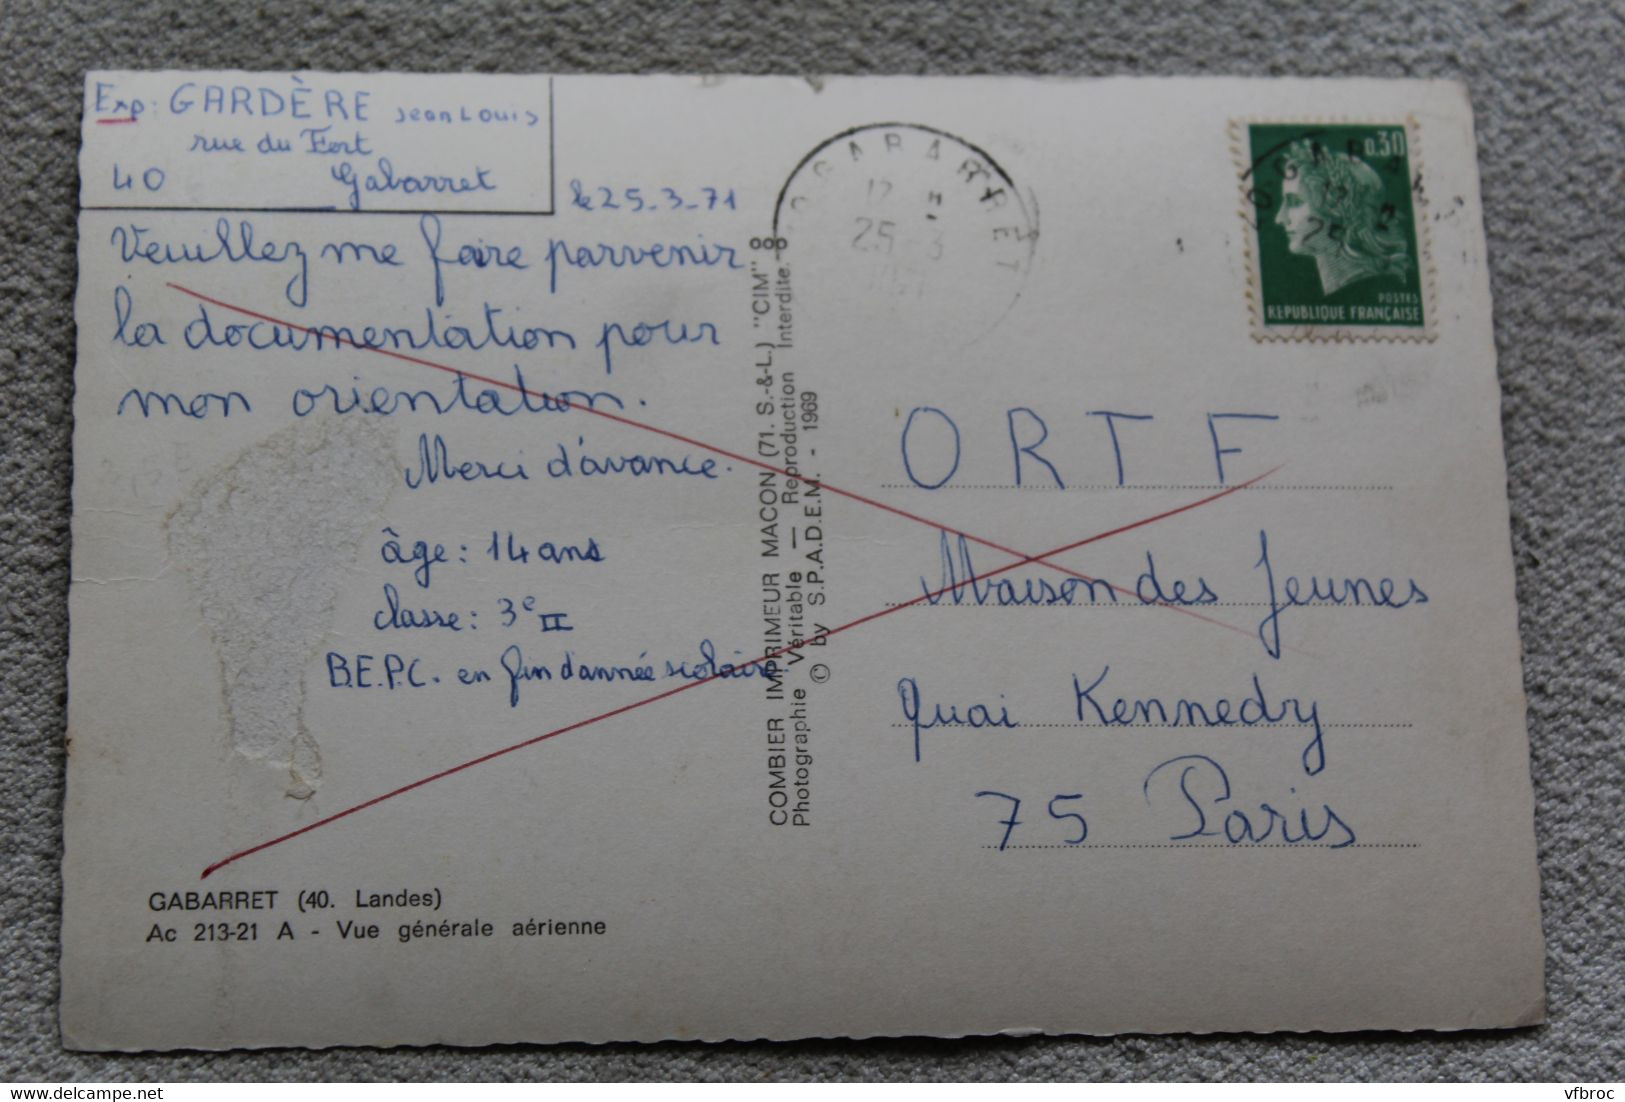 Exp: GARDÈRE Jean Louis
rue du Fort
40 Gabarret
le 25-3-71
Veuillez me faire parvenir
la documentation pour
mon orientation.
Merci d'avance.
âge: 14 ans
classe: 3e II
B.E.P.C. en fin d'année scolaire.
GABARRET (40. Landes)
Ac 213-21 A - Vue générale aérienne
COMBIER IMPRIMEUR MACON (71. S.-&-L.) "CIM"
Photographie Véritable — Reproduction Interdite.
© by S.P.A.D.E.M. - 1969
GABARRET
12
25 - 3
0.30
POSTES
REPUBLIQUE FRANÇAISE
O R T F
Maison des Jeunes
Quai Kennedy
75 Paris
www.delcampe.net
vfbroc